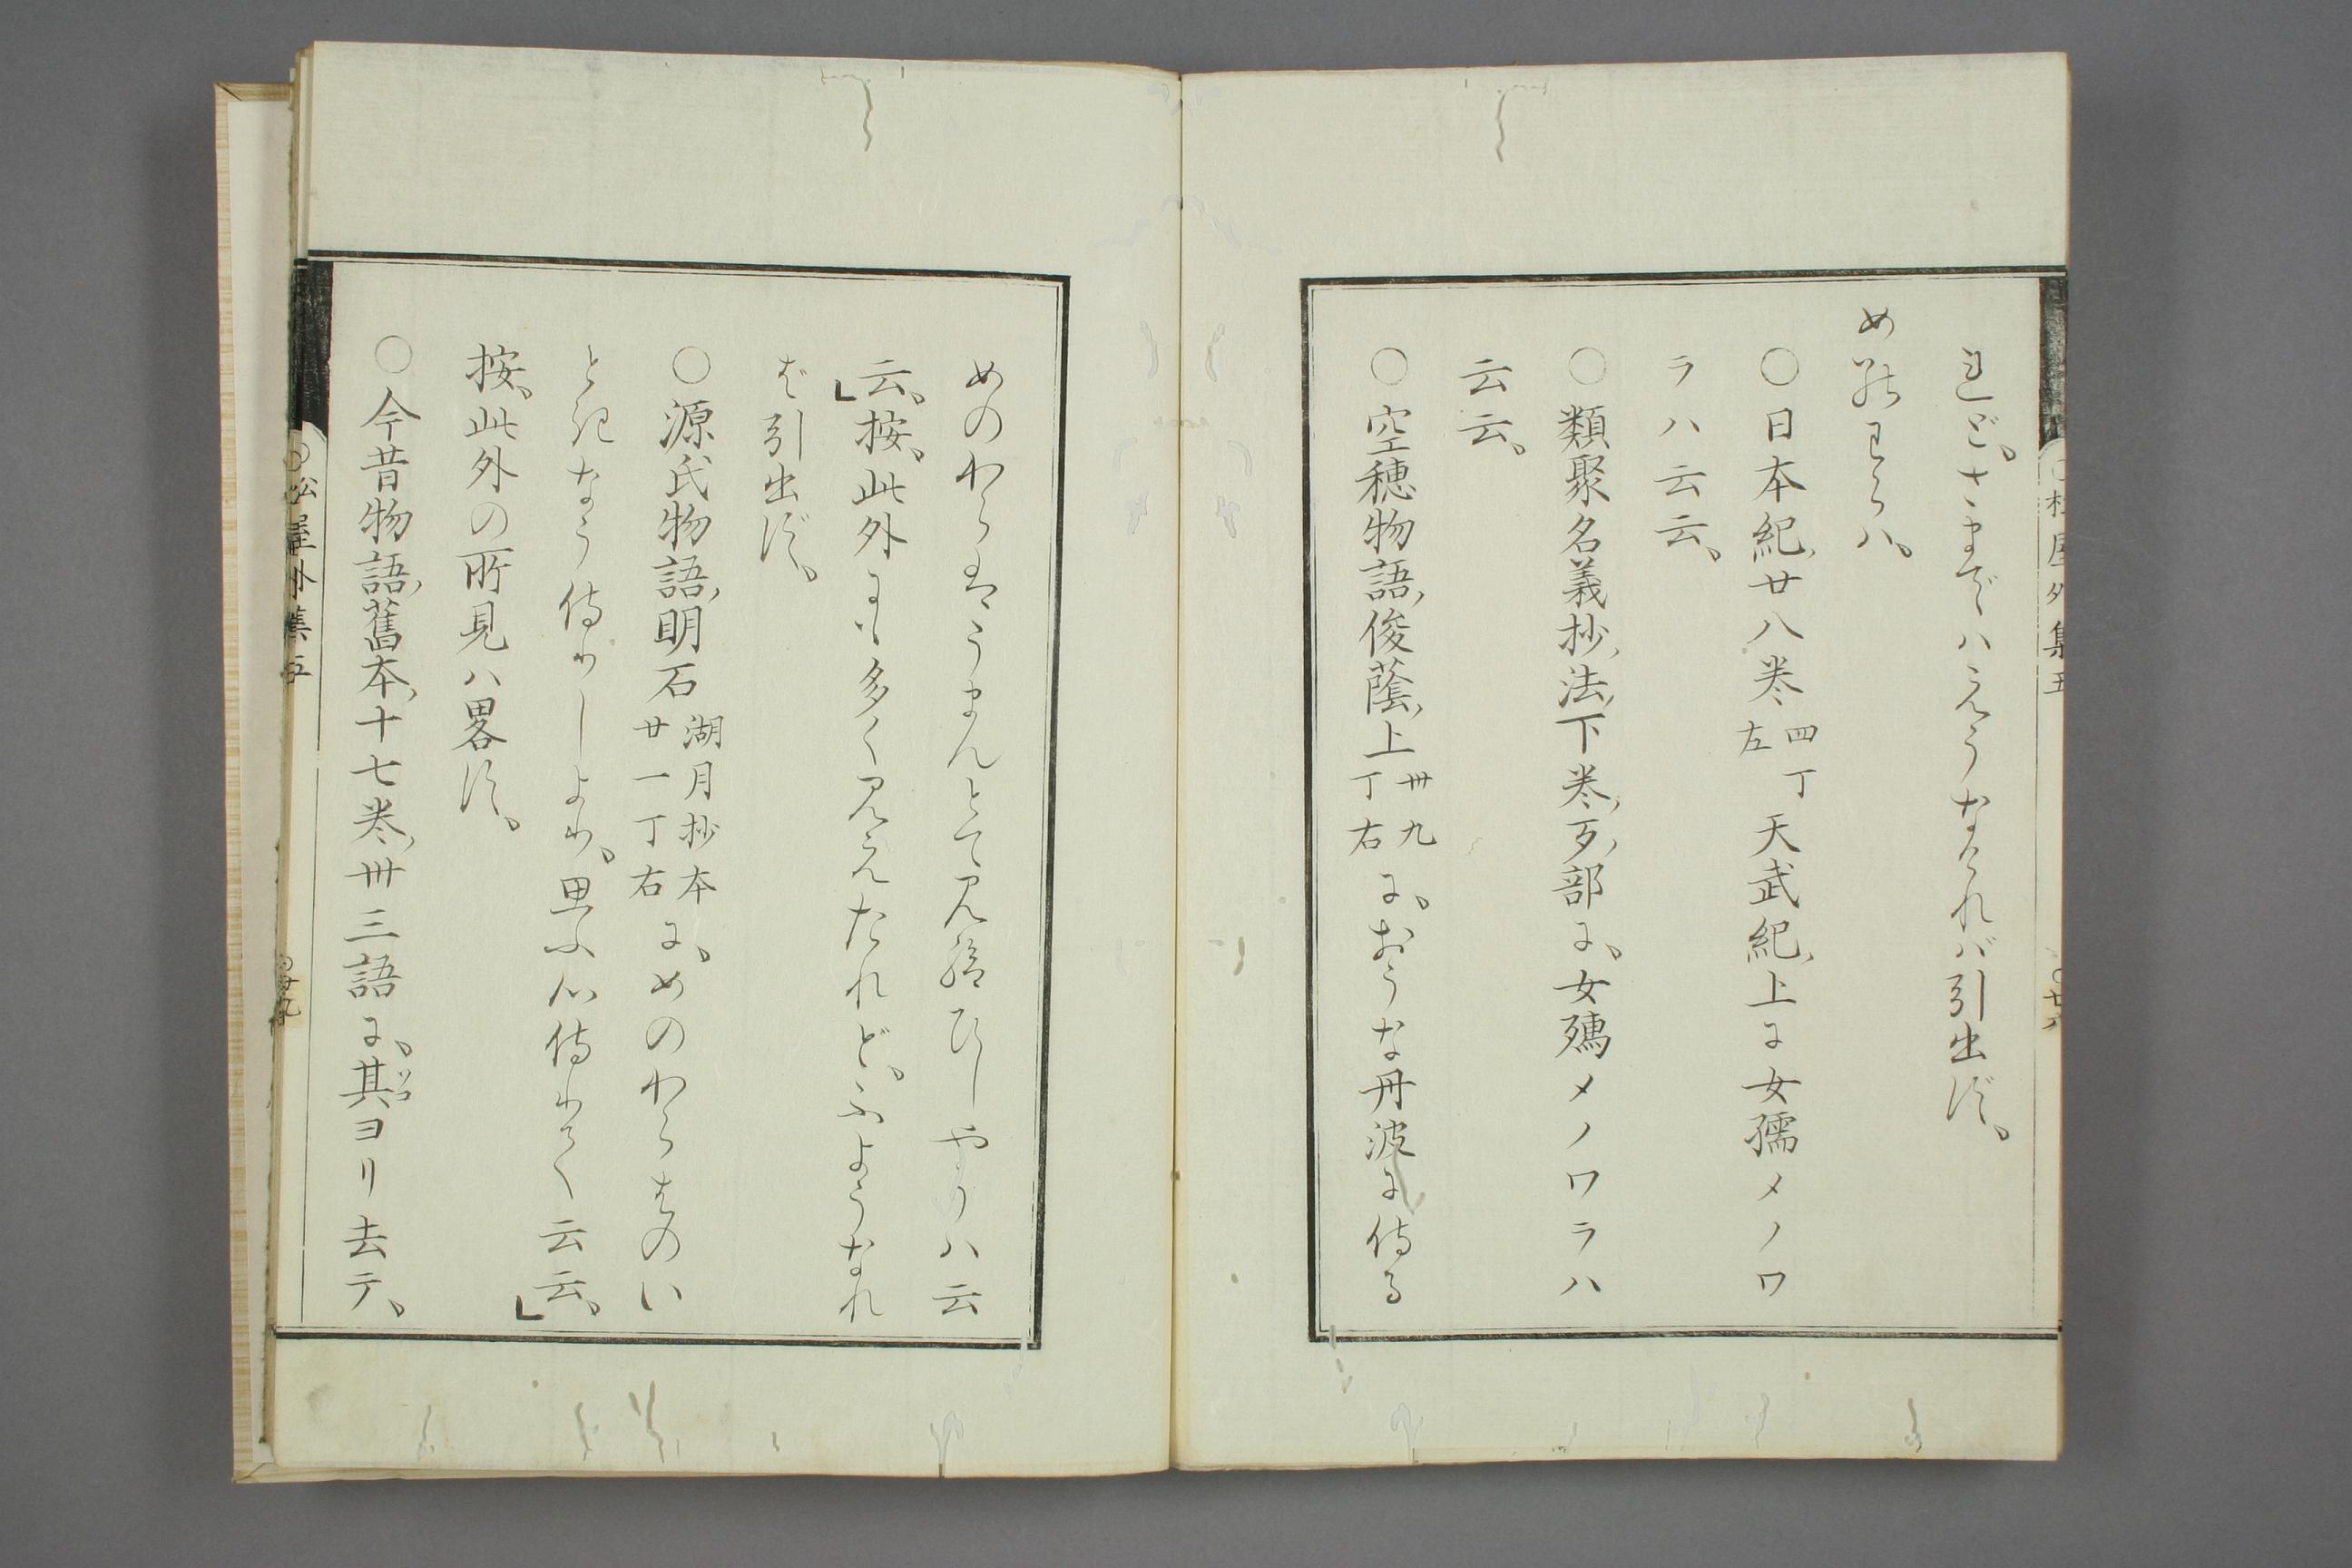 れど、さまではえうなければ引出ず、
めのわらハ、
〇日本紀、廿八巻四丁左天武紀、上に女孺メノワ
ラハ云云、
〇類聚名義抄、法、下巻、歹、部に、女殤メノワラハ
云云、
〇空穂物語、俊蔭、上卅九丁右に、おうな丹波に侍る
めのわらはうまんとて見給ひしやうハ云
云、」按、此外にも多く見えたれど、ふようなれ
ば引出ず、
〇源氏物語、明石湖月抄本廿一丁右に、めのわらはのい
ときなう侍りしより、思ふ心侍りて云云、」
按、此外の所見ハ畧す、
〇今昔物語、舊本、十七巻、卅三語に、其ソコヨリ去テ、
〇松屋外集五
〇廿九